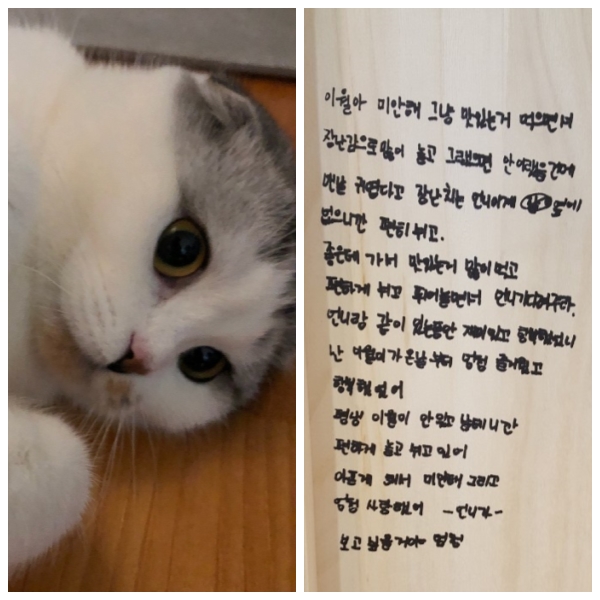 이월아 미안해 그냥 맛있는거 먹으면서
장난감으로 많이 놀고 그랬으면 안아팠을건데
맨날 귀엽다고 장난치는 언니이제 옆에
없으니깐 편히 쉬고.
좋은데 가서 맛있는거 많이 먹고
편하게 쉬고 뛰어놀면서 언니기다려주라.
언니랑 같이 있는동안 재미있고 행복했었니
난 이월이가 온날부터 엄청 즐거웠고
행복했었어
평생 이월이 안잊고 살테니간
편하게 놀고 쉬고 있어
아프게 해서 미안해 그리고
엄청 사랑했어 -언니가-
보고 싶을거야 엄청